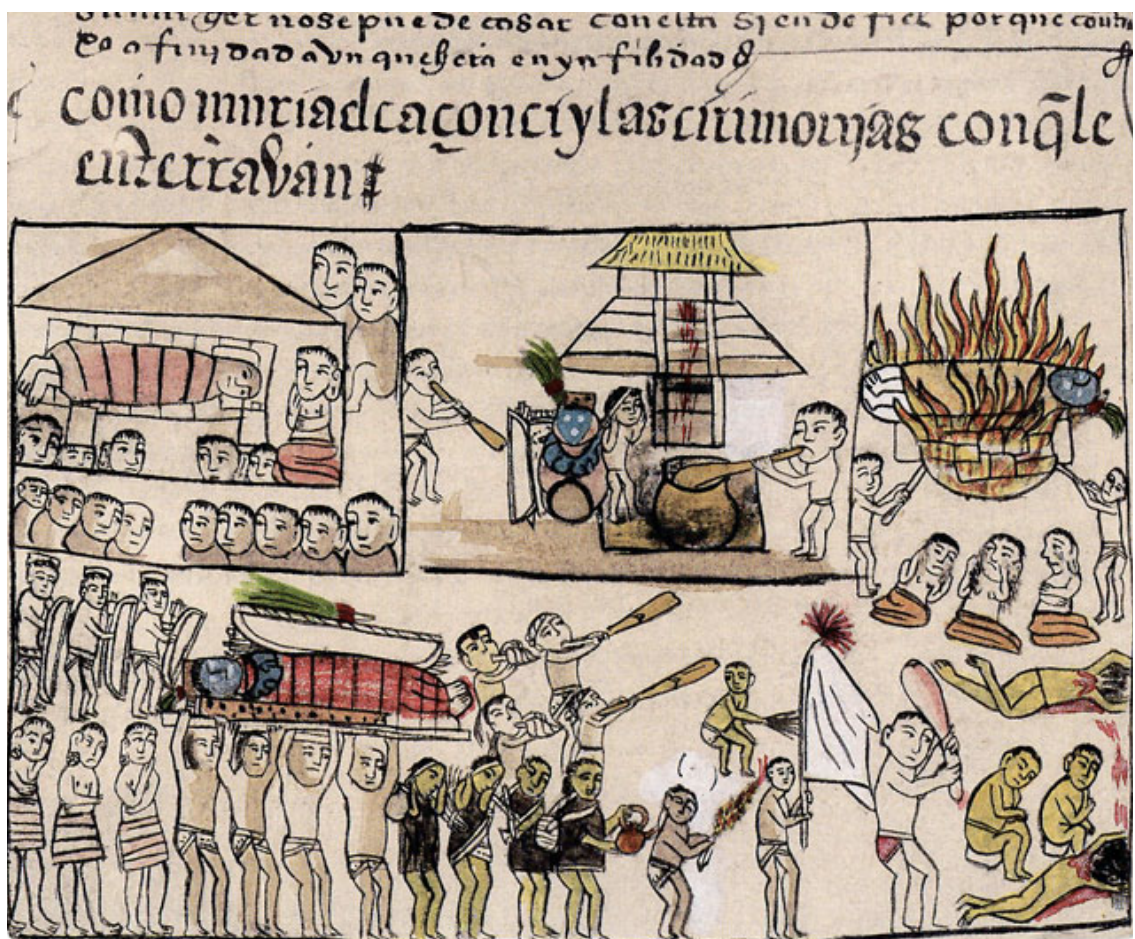 no se puede casar con ella si en de fiel porque contra
xo afinidad avn que hera en ynfilidad
como muria el caçonci y las cirimonjas con q̃ le
enterravan